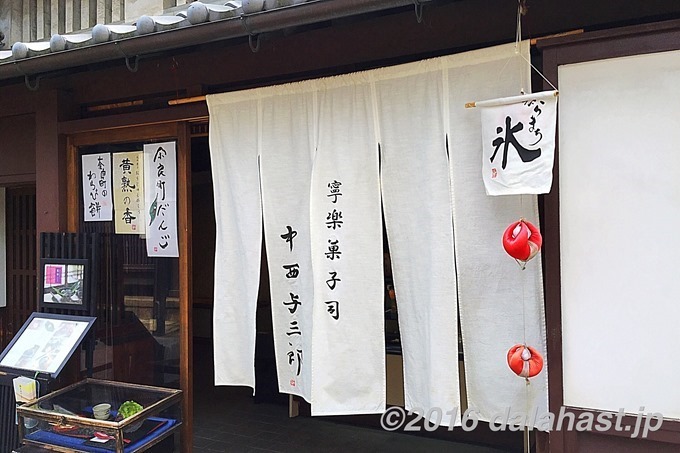 ならまち
氷
寧楽菓子司
中西与三郎
奈良町だんご
黄熟の香
奈良町の
わらび餅
©2016 dalahast.jp